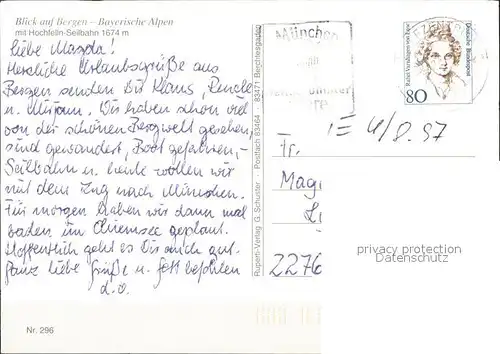 Blick auf Bergen – Bayerische Alpen
mit Hochfelln-Seilbahn 1674 m
Liebe Magda!
Herzliche Urlaubsgrüße aus
Bergen senden Dir Klaus,
u. Mirjam. Wir haben schon viel
von der schönen Bergwelt gesehen,
sind gewandert, Boot gefahren, -
Seilbahn u. heute wollen wir
mit dem Zug nach München.
Für morgen haben wir dann mal
baden im Chiemsee geplant.
Hoffentlich geht es Dir auch gut.
Ganz liebe Grüße u. Gott befohlen
d. o.
Nr. 296
Rupert-Verlag G. Schuster · Postfach 83464 · 83471 Berchtesgaden
München
Deutsche Bundespost
Rahel Varnhagen von Ense
80
4/8.97
Fr.
Mag
2276
privacy protection
Datenschutz